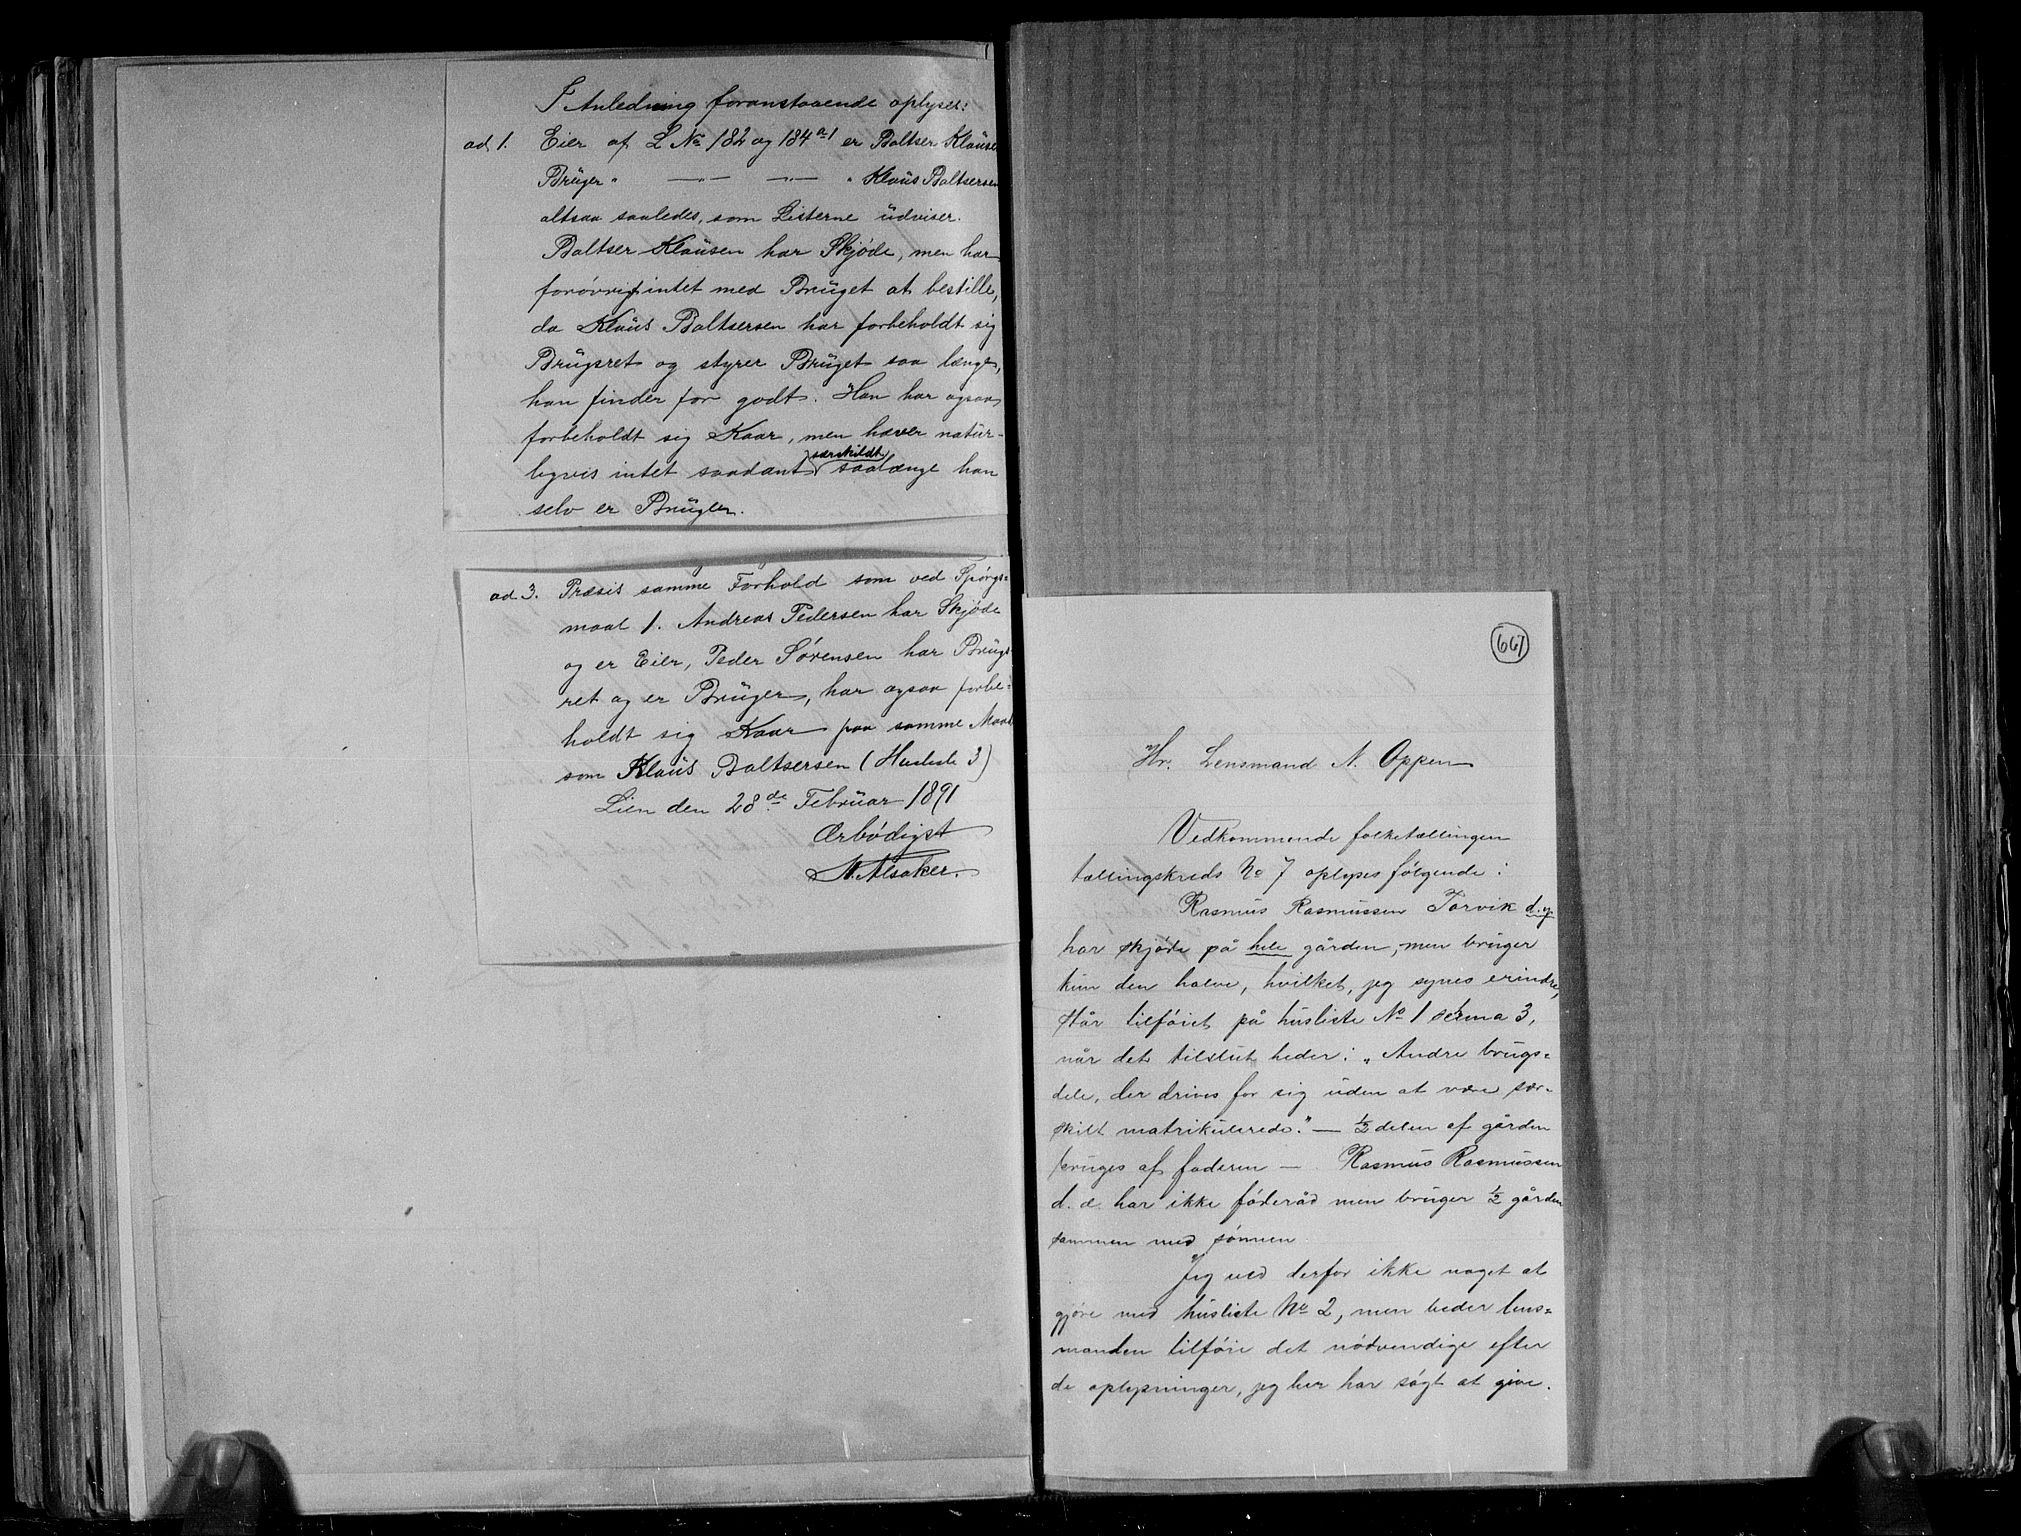 I Anledning foranstaaende oplyses:
ad 1. Eier af L No 182 og 184 a1 er Baltser Klause
Brüger " —"— —"— " Klaüs Baltsersen
altsaa saaledes, som Listerne üdviser.
Baltser Klaüsen har Skjøde, men har
forøvrigt intet med Brüget at bestille,
da Klaüs Baltsersen har forbeholdt sig
Brügsret og styrer Brüget saa længe,
han finder for godt. Han har ogsaa
forbeholdt sig Kaar, men hæver natür-
ligvis intet saadant særskildt saalænge han
selv er Brüger.
ad 3. Præsis samme Forhold som ved Spørgs=
maal 1. Andreas Pedersen har Skjøde
og er Eier, Peder Sørensen har Brügs
ret og er Brüger, har ogsaa forbe=
holdt sig Kaar paa samme Maade
som Klaüs Baltsersen (Husliste 3)
Lien den 28de Februar 1891
Ærbødigst
N. Alsaker.
667
Hr. Lensmand N. Oppen
Vedkommende folketællingen
tællingskreds No 7 oplyses følgende:
Rasmus Rasmussen Torvik d. y.
har skjøde på hele gården, men bruger
kun den halve, hvilket, jeg synes erindre,
står tilføiet på husliste No 1 skema 3,
når det tilslut heder: „Andre brugs=
dele, der drives for sig uden at være sær-
skilt matrikulerede." — ½ delen af gården
bruges af faderen — Rasmus Rasmussen
d. æ. har ikke føderåd men bruger ½ gården
sammen med sønnen
Jeg ved derfor ikke noget at
gjøre med husliste No 2, men beder lens=
manden tilføie det nødvendige efter
de oplysninger, jeg her har søgt at give.